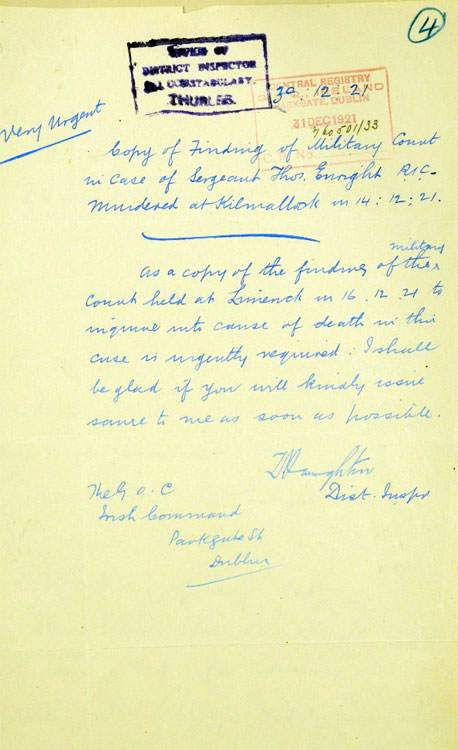 4
OFFICE OF
DISTRICT INSPECTOR
CONSTABULARY,
THURLES.
30.12.21
CENTRAL REGISTRY
PARKGATE, DUBLIN
31 DEC 1921
Very Urgent
Copy of Finding of Military Court
in case of Sergeant Thos. Enright RIC-
Murdered at Kilmallock on 14:12:21.
As a copy of the finding of the military
Court held at Limerick on 16.12.21 to
inquire into cause of death in this
case is urgently required: I shall
be glad if you will kindly issue
same to me as soon as possible.
Dist. Inspr
The G.O.C
Irish Command
Parkgate St
Dublin